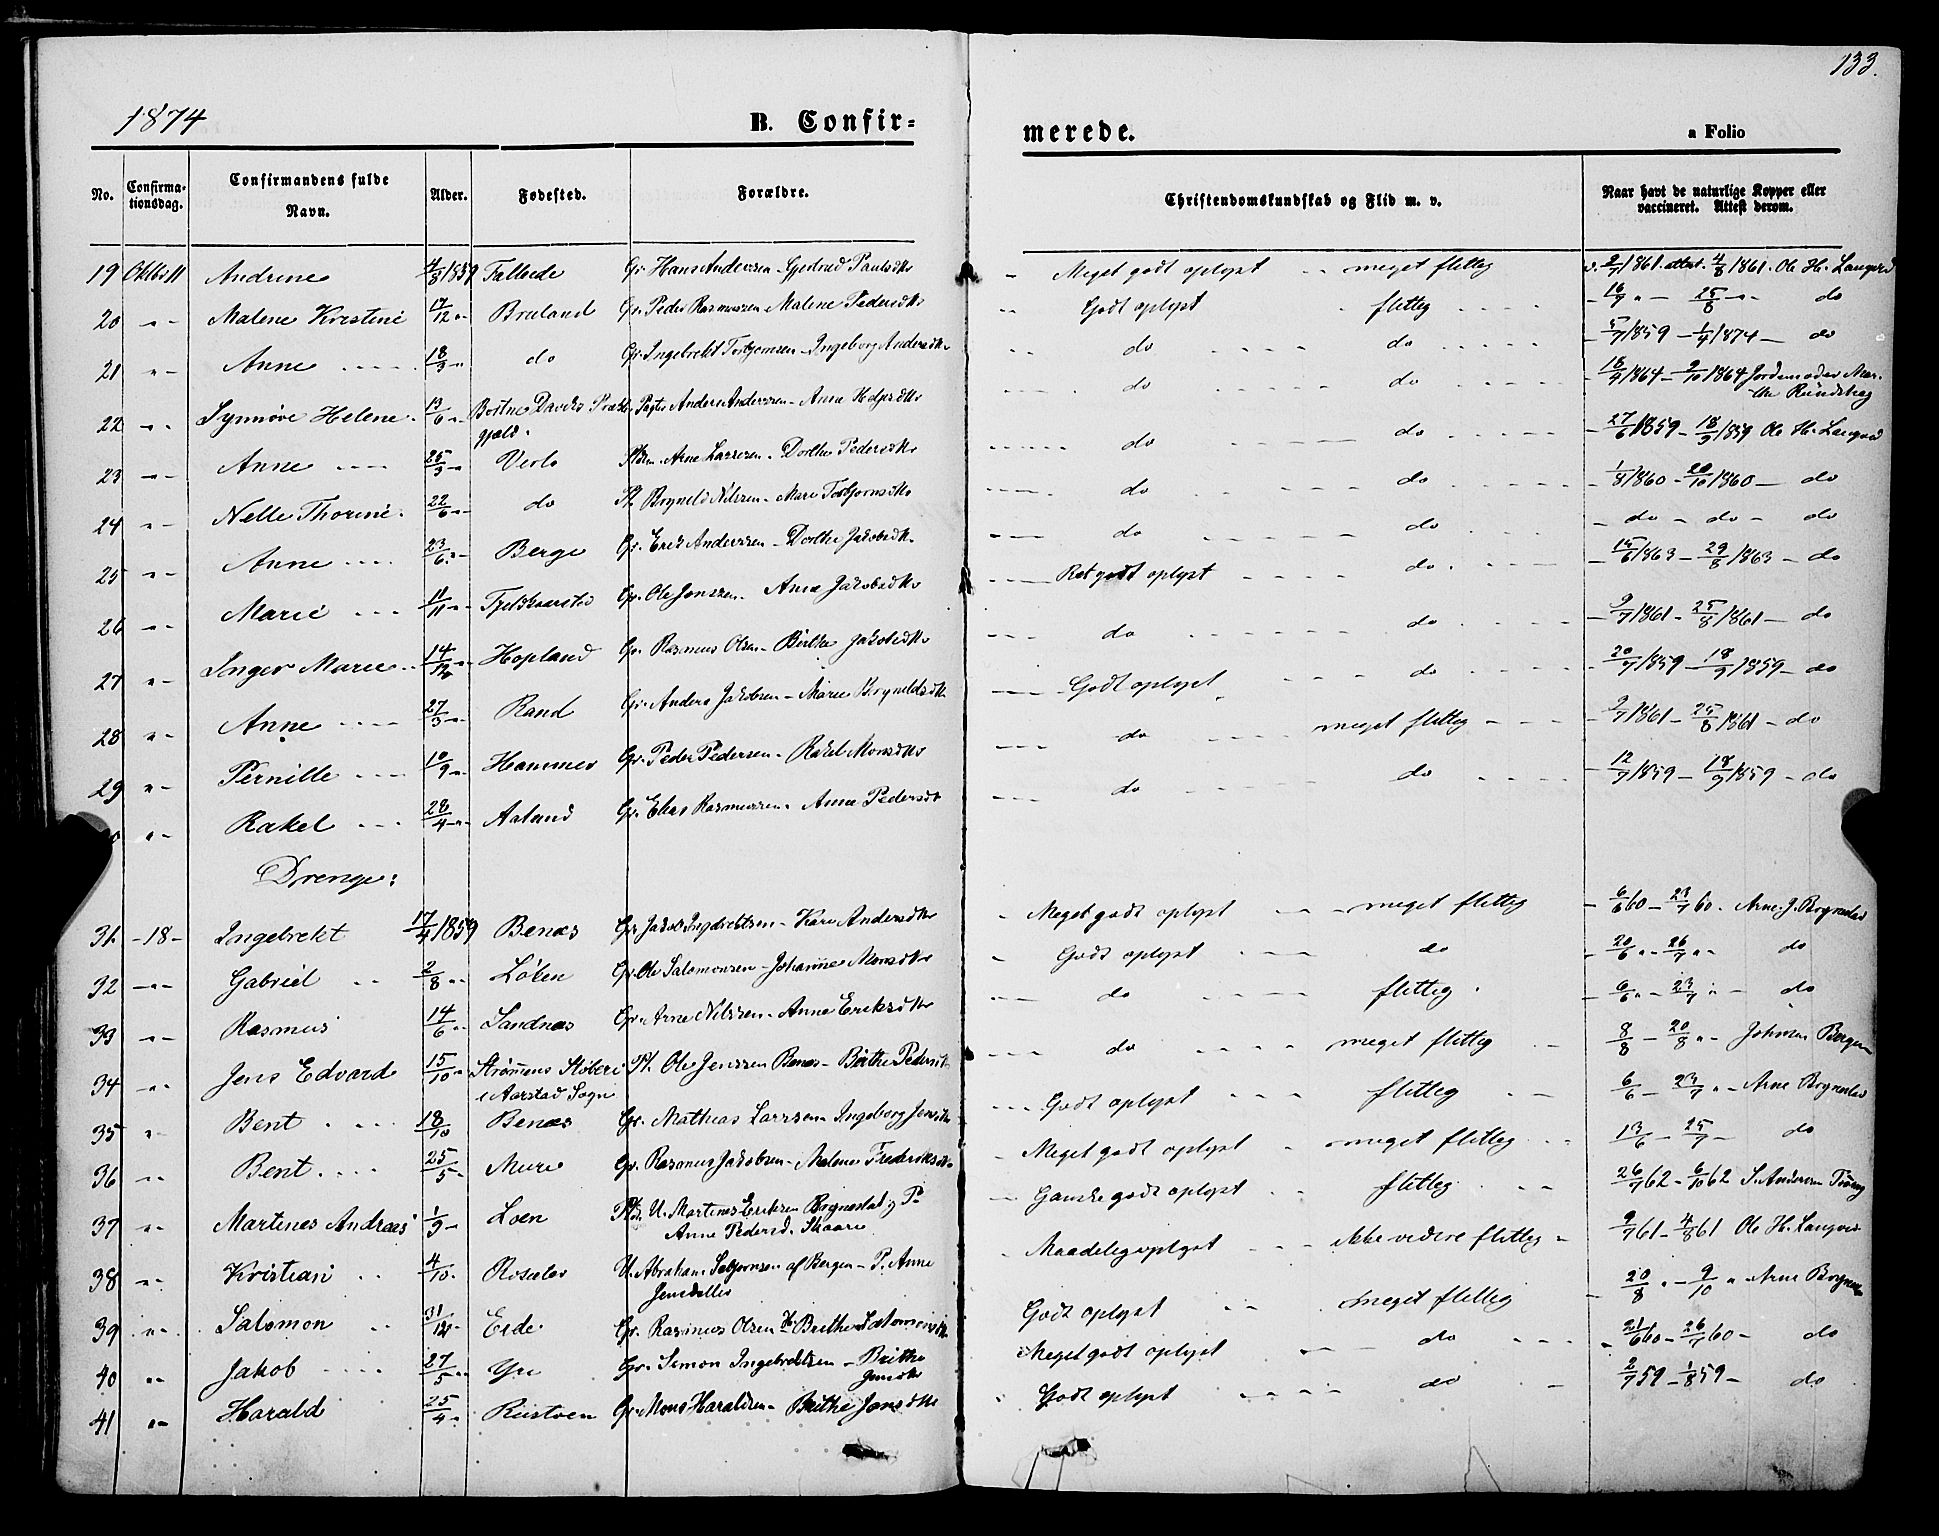 133.
1874
B. Confir-
merede.
a Folio
No.
Confirma-
tionsdag.
Confirmandens fulde
Navn.
Alder.
Fødested.
Forældre.
Christendomskundskab og Flid m. v.
Naar havt de naturlige Kopper eller
vaccineret. Attest derom.
19 Oktbr 11 Andrine 4/8 1859 Gr. Hans Anderssen - Gjertrud Paulsdtr - Meget godt oplyst - - meget flittig v. 2/7 1861. attest. 4/8 1861. Ole H. Langved
20 " - Malene Kristine 17/12 " Gr. Peder Rasmussen - Malene Pedersdtr Godt oplyst flittig - 16/7 " - 25/8 " - do
21 " - Anne 18/3 " do Gr. Ingebrekt Torbjørnsen - Ingeborg Andersdtr do do - 5/7 1859 - 1/4 1874 - do
22 " - Synnøve Helene 13/6 " Anders Anderssen - Anne do do - 18/9 1864 - 9/10 1864 Jordemoder Mar-
gjeld. the
23 " - Anne 25/3 " Arne Larssen - Dorthe Pedersdtr do do - 27/6 1859 - 18/9 1859 Ole H. Langved
24 " - Nelle Thorine 22/6 " do Brynild Nilssen - Mari Torbjørnsdtr do do - 1/8 1860 - 20/10 1860 - do
25 " - Anne 23/6 " Berge Gr. Erik Anderssen - Dorthe Jakobsdtr do do - do - do - do
26 " - Marie 11/11 " Gr. Ole Jenssen - Anne Jakobsdtr Ret godt oplyst do - 15/6 1863 - 29/8 1863 - do
27 " - Inger Marie 14/12 " Hopland Gr. Rasmus Olsen - Birthe Jakobsdtr do do - 9/7 1861 - 25/8 1861 - do
28 " - Anne 27/3 " Rand Gr. Anders Jakobsen - Marie Brynildsdtr Godt oplyst do - 20/7 1859 - 18/9 1859 - do
29 " - Pernille 10/9 " Hammer Gr. Peder Pedersen - Rakel Monsdtr do meget flittig - 9/7 1861 - 25/8 1861 - do
" - Rakel 28/4 " Aaland Gr. Elias Rasmussen - Anne Pedersdtr do do - 12/7 1859 - 18/9 1859 - do
Drenge:
31 - 18 - Ingebrekt 17/4 1859 Benæs Gr. Jakob Ingebrektsen - Kari Andersdtr - Meget godt oplyst - meget flittig - 6/6 60 - 23/7 60. Arne J. Brynestad
32 - " - Gabriel 2/8 " Løken Gr. Ole Salomonsen - Johanne Monsdtr - Godt oplyst do - 20/6 " - 26/7 " - do
33 - " - Rasmus 14/6 " Sandnæs Gr. Arne Nilssen - Anne Eriksdtr do flittig - 6/6 " - 23/7 " - do
34 " - Jens Edvard 15/10 " Strømmens Støberi Pl. Ole Jenssen Benæs - Birthe Pedersdtr do meget flittig 8/8 - 20/8 " - Johman Bergen
i Aarstad Sogn
35 " - Bent 18/10 Benæs Gr. Mathias Larssen - Ingeborg Jensdtr Godt oplyst flittig 6/6 - 23/7 " - Arne Brynestad
36 " - Bent 25/5 - Muri Gr. Rasmus Jakobsen - Malene Frederiksdtr - Meget godt oplyst meget flittig 13/6 - 25/7 - do
37 " - Martines Andreas 1/9 - Loen U. Martines Eriksen Brynestad og P. Ganske godt oplyst flittig 26/7 62 - 6/10 62 S. Andersen
Anne Pedersd. Skaare
38 " - Kristian 4/10 - Rosæter U. Abraham af Bergen - P. Anne - Maadelig oplyst ikke videre flittig - 9/7 61 - 4/8 61 Ole H. Langved
Jensdatter
39 " - Salomon 31/12 Eide Gr. Rasmus Olsen & Brithe Salomonsdtr Godt oplyst meget flittig - 20/8 " - 9/10 " Arne Brynestad
40 " Jakob 27/5 " Yri Gr. Simon Ingebrektsen - Brithe Meget godt oplyst do - 21/6 60 - 26/7 60 - do
Jensdtr
41 " - Harald 25/4 " Rustøen Gr. Mons Haraldsen - Brithe Jonsdtr Godt oplyst do - 2/7 59 - 1/8 59 - do